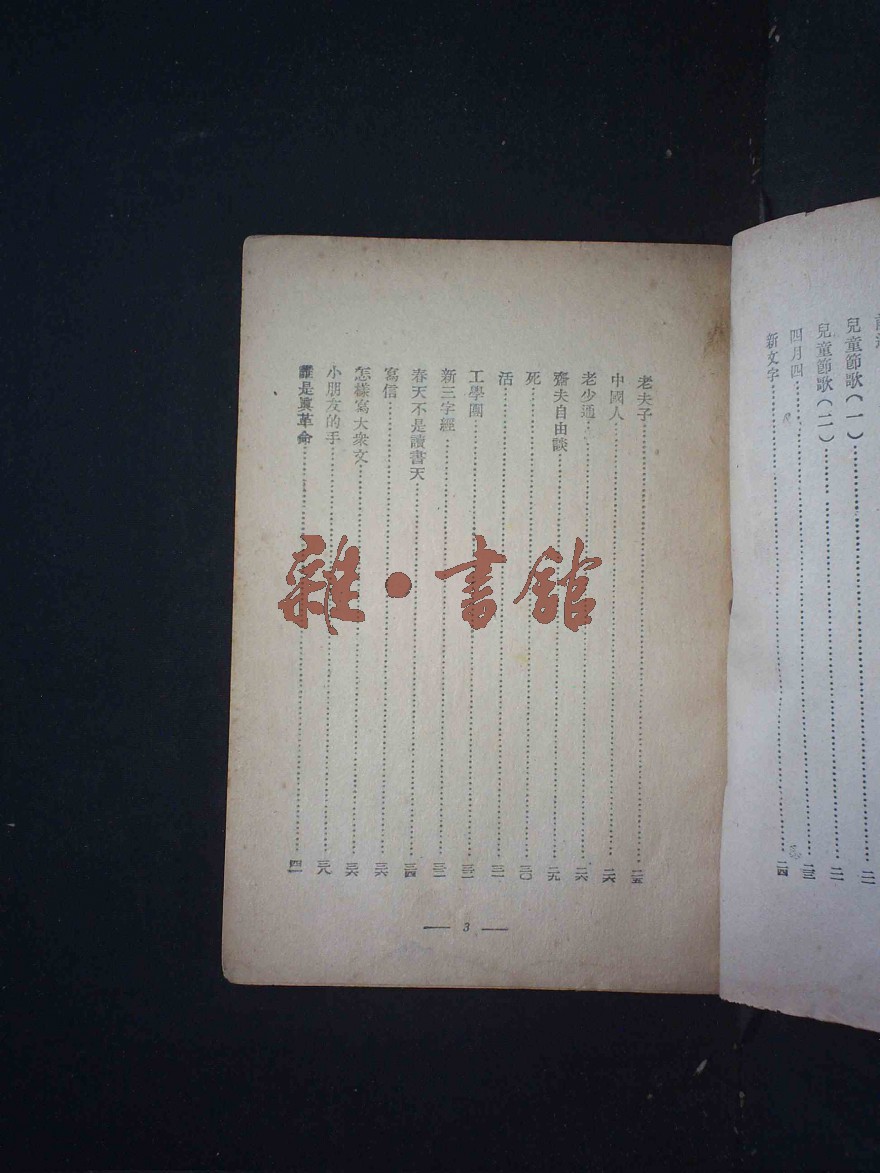 兒童節歌（一）……二二
兒童節歌（二）……二二
四月四……二三
新文字……二四
老夫子……二五
中國人……二六
老少通……二六
齋夫自由談……二九
死……三〇
活……三一
工學團……三二
新三字經……三二
春天不是讀書天……三四
寫信……三六
怎樣寫大衆文……三六
小朋友的手……三八
誰是眞革命……四一
— 3 —
雜·書館